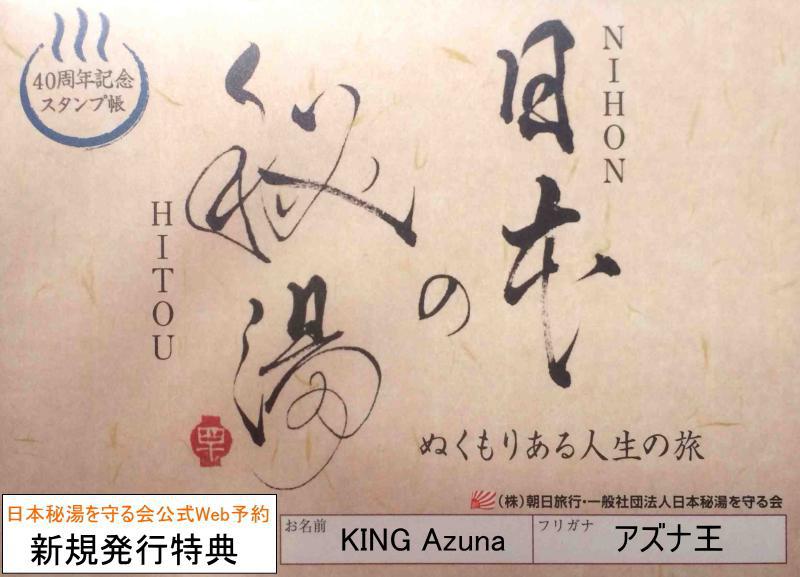 40周年記念
スタンプ帳
NIHON
日本
の
秘湯
HITOU
ぬくもりある人生の旅
(株)朝日旅行・一般社団法人日本秘湯を守る会
日本秘湯を守る会公式Web予約
新規発行特典
お名前
KING Azuna
フリガナ
アズナ王